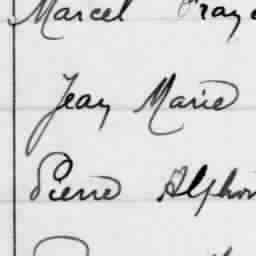 Marcel
Jean Marie
Pierre Alphon